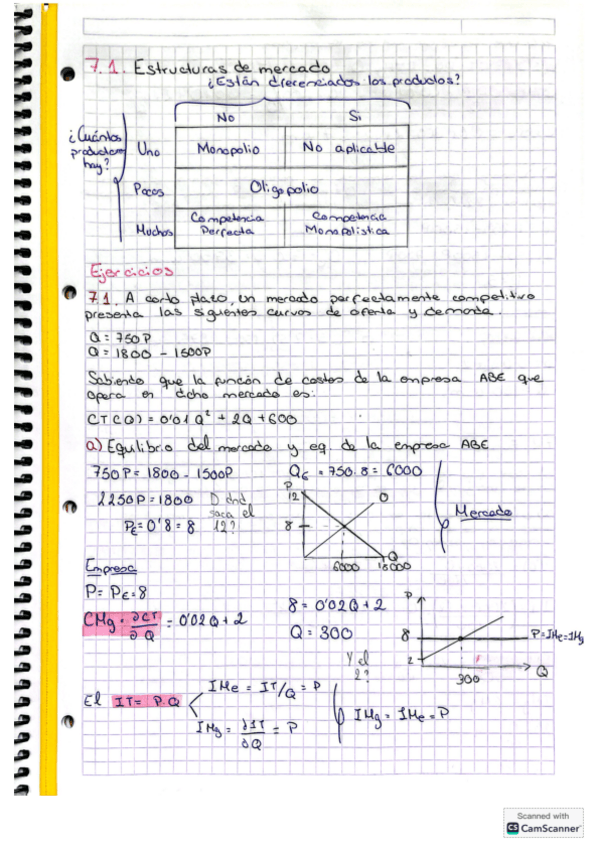 7.1. Estructuras de mercado
¿Están diferenciados los productos?
No
Si
¿Cuántos productores hay?
Uno
Monopolio
No aplicable
Pocos
Oligopolio
Muchos
Competencia Perfecta
Competencia Monopolistica
Ejercicios
7.1. A corto plazo, un mercado perfectamente competitivo
presenta las siguientes curvas de oferta y demanda.
Q = 750P
Q = 1800 - 1500P
Sabiendo que la función de costes de la empresa ABE que
opera en dicho mercado es:
CT(Q) = 0'01Q² + 2Q + 600
a) Equilibrio del mercado y eq. de la empresa ABE
750P = 1800 - 1500P
QE = 750·8 = 6000
2250P = 1800
D dnd saca el 12?
PE = 0'8 = 8
P
12
8
O
Q
6000
18000
Mercado
Empresa
P = PE = 8
CMg = ∂CT/∂Q = 0'02Q + 2
8 = 0'02Q + 2
Q = 300
P
8
2
P=IMe=IMg
300
Q
Y el 2?
El IT = P·Q
IMe = IT/Q = P
IMg = ∂IT/∂Q = P
IMg = IMe = P
Scanned with
CS CamScanner